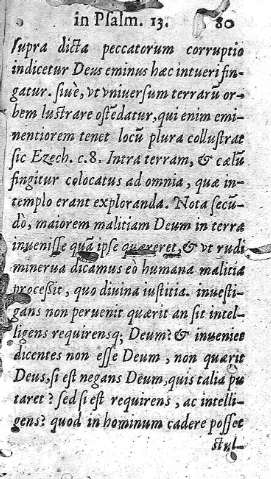 in Psalm. 13. 80
supra dicta peccatorum corruptio
indicetur Deus eminus hæc intueri fin-
gatur. siue, vt vniuersum terrarũ or-
bem lustrare ostẽdatur, qui enim emi-
nentiorem tenet locũ plura collustrat
sic Ezech. c.8. Intra terram, & cælũ
fingitur colocatus ad omnia, quæ in
templo erant exploranda. Nota secũ-
dò, maiorem malitiam Deum in terra
inuenisse quã ipse quæreret, & vt rudi
minerua dicamus eo humana malitia
processit, quo diuina iustitia. inuesti-
gans non peruenit quærit an sit intel-
ligens requirensq; Deum? & inueniet
dicentes non esse Deum, non quærit
Deus, si est negans Deum, quis talia pu
taret? sed si est requirens, ac intelli-
gens? quod in hominum cadere posset
stul-